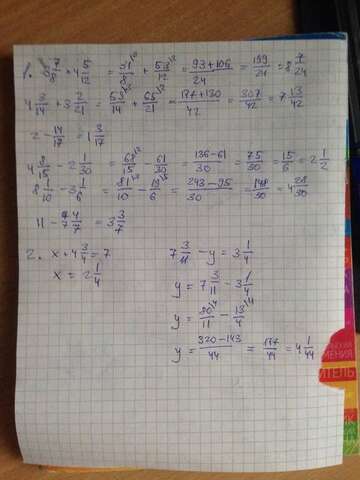 1. 3 7/8 + 4 5/12 = 31/8 + 53/12 = 93+106/24 = 199/24 = 8 7/24
4 3/14 + 3 2/21 = 59/14 + 65/21 = 177+130/42 = 307/42 = 7 13/42
2 - 14/17 = 1 3/17
4 8/15 - 2 1/30 = 68/15 - 61/30 = 136-61/30 = 75/30 = 15/6 = 2 1/2
8 1/10 - 3 1/6 = 81/10 - 19/6 = 243-95/30 = 148/30 = 4 28/30
11 - 7 4/7 = 3 3/7
2. x + 4 3/4 = 7 7 3/11 - y = 3 1/4
x = 2 1/4 y = 7 3/11 - 3 1/4
y = 80/11 - 13/4
y = 320-143/44 = 177/44 = 4 1/44